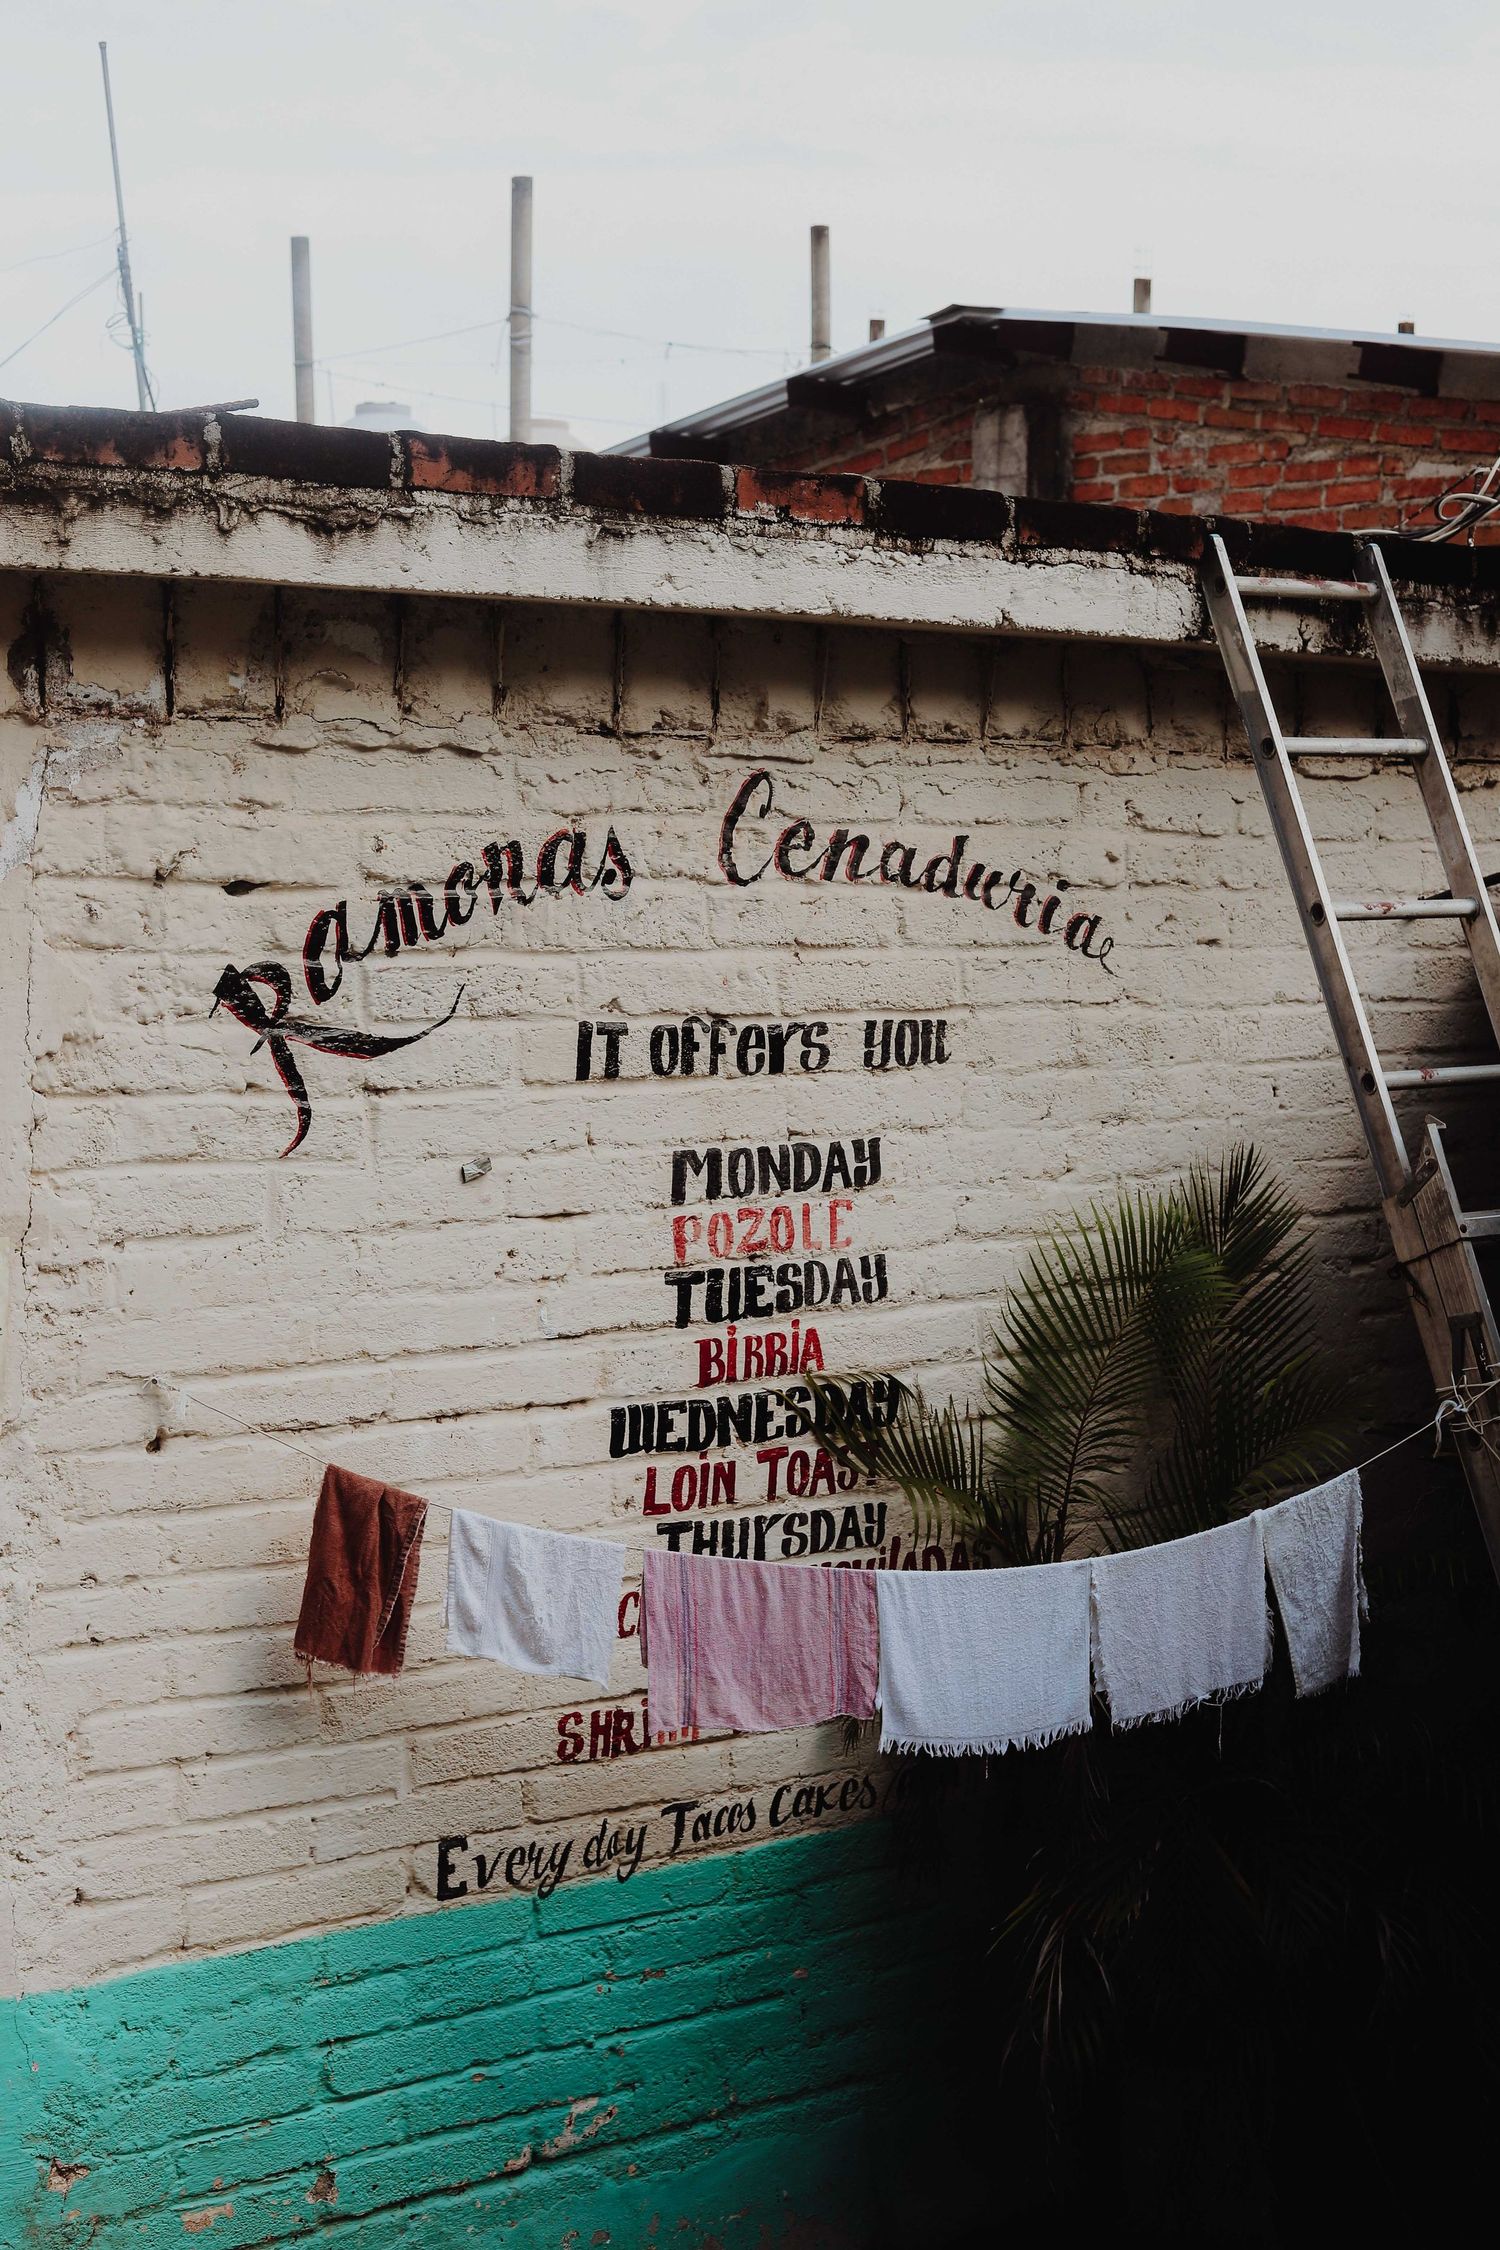 Ramonas Cenaduria
IT offers you
MONDAY
POZOLE
TUESDAY
BIRRIA
WEDNESDAY
LOIN TOAST
THURSDAY
Every day Tacos Cakes